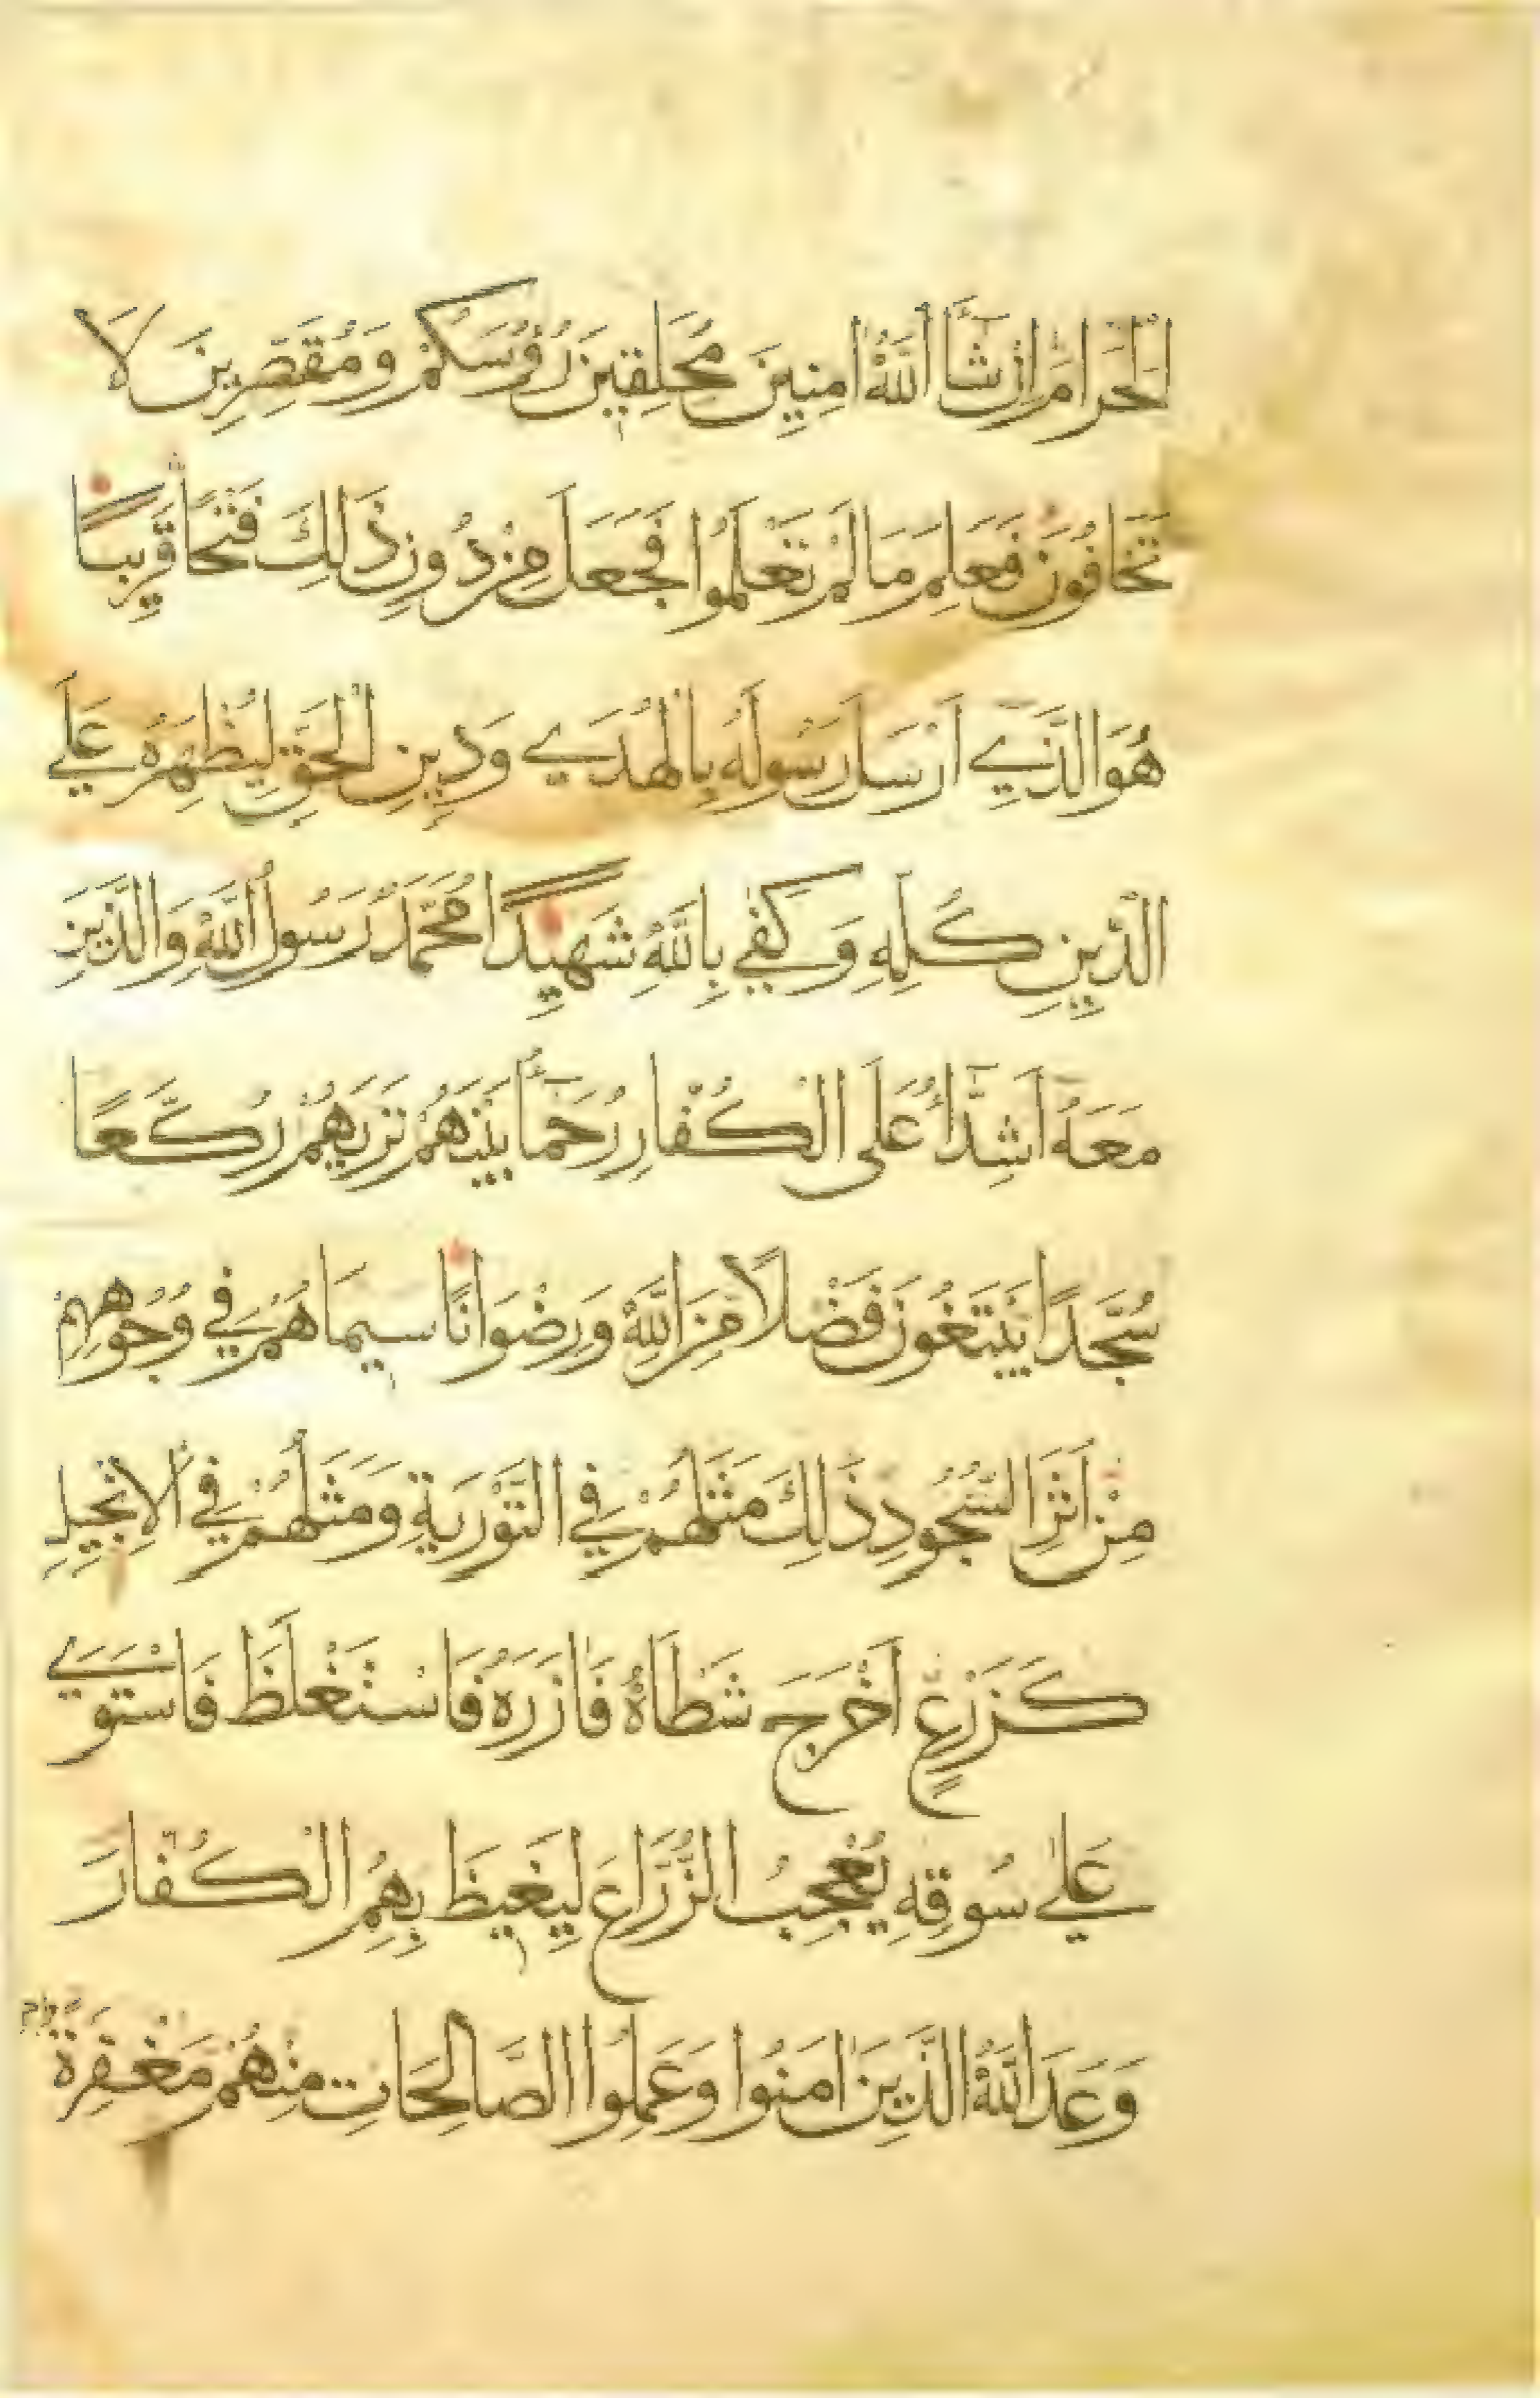 الْحَرَامَ اِنْ شَآءَ اللّٰهُ اٰمِنِينَ مُحَلِّقِينَ رُؤُسَكُمْ وَمُقَصِّرِينَ لَا
تَخَافُونَ فَعَلِمَ مَا لَمْ تَعْلَمُوا فَجَعَلَ مِنْ دُونِ ذَلِكَ فَتْحًا قَرِيبًا
هُوَ الَّذِي اَرْسَلَ رَسُولَهُ بِالْهُدَي وَدِينِ الْحَقِّ لِيُظْهِرَهُ عَلَي
الدِّينِ كُلِّهِ وَكَفَي بِاللّٰهِ شَهِيدًا مُحَمَّدٌ رَسُولُ اللّٰهِ وَالَّذِينَ
مَعَهُ اَشِدَّآءُ عَلَى الْكُفَّارِ رُحَمَآءُ بَيْنَهُمْ تَرَيهُمْ رُكَّعًا
سُجَّدًا يَبْتَغُونَ فَضْلًا مِنَ اللّٰهِ وَرِضْوَانًا سِيمَاهُمْ فِي وُجُوهِهِمْ
مِنْ اَثَرِ السُّجُودِ ذَلِكَ مَثَلُهُمْ فِي التَّوْرَيةِ وَمَثَلُهُمْ فِي الْاِنْجِيلِ
كَزَرْعٍ اَخْرَجَ شَطْاَهُ فَاٰزَرَهُ فَاسْتَغْلَظَ فَاسْتَوَي
عَلٰي سُوقِهِ يُعْجِبُ الزُّرَّاعَ لِيَغِيظَ بِهِمُ الْكُفَّارَ
وَعَدَ اللّٰهُ الَّذِينَ اٰمَنُوا وَعَمِلُوا الصَّالِحَاتِ مِنْهُمْ مَغْفِرَةً